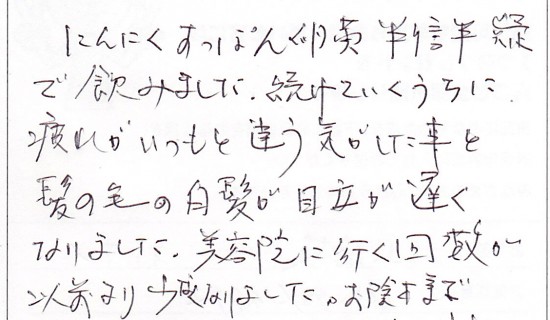 にんにくすっぽん卵黄半信半疑
で飲みました.続けていくうちに
疲れがいつもと違う気がした事と
髪の毛の白髪が目立が遅く
なりました.美容院に行く回数が
以前より少なくなりました。お陰さまで